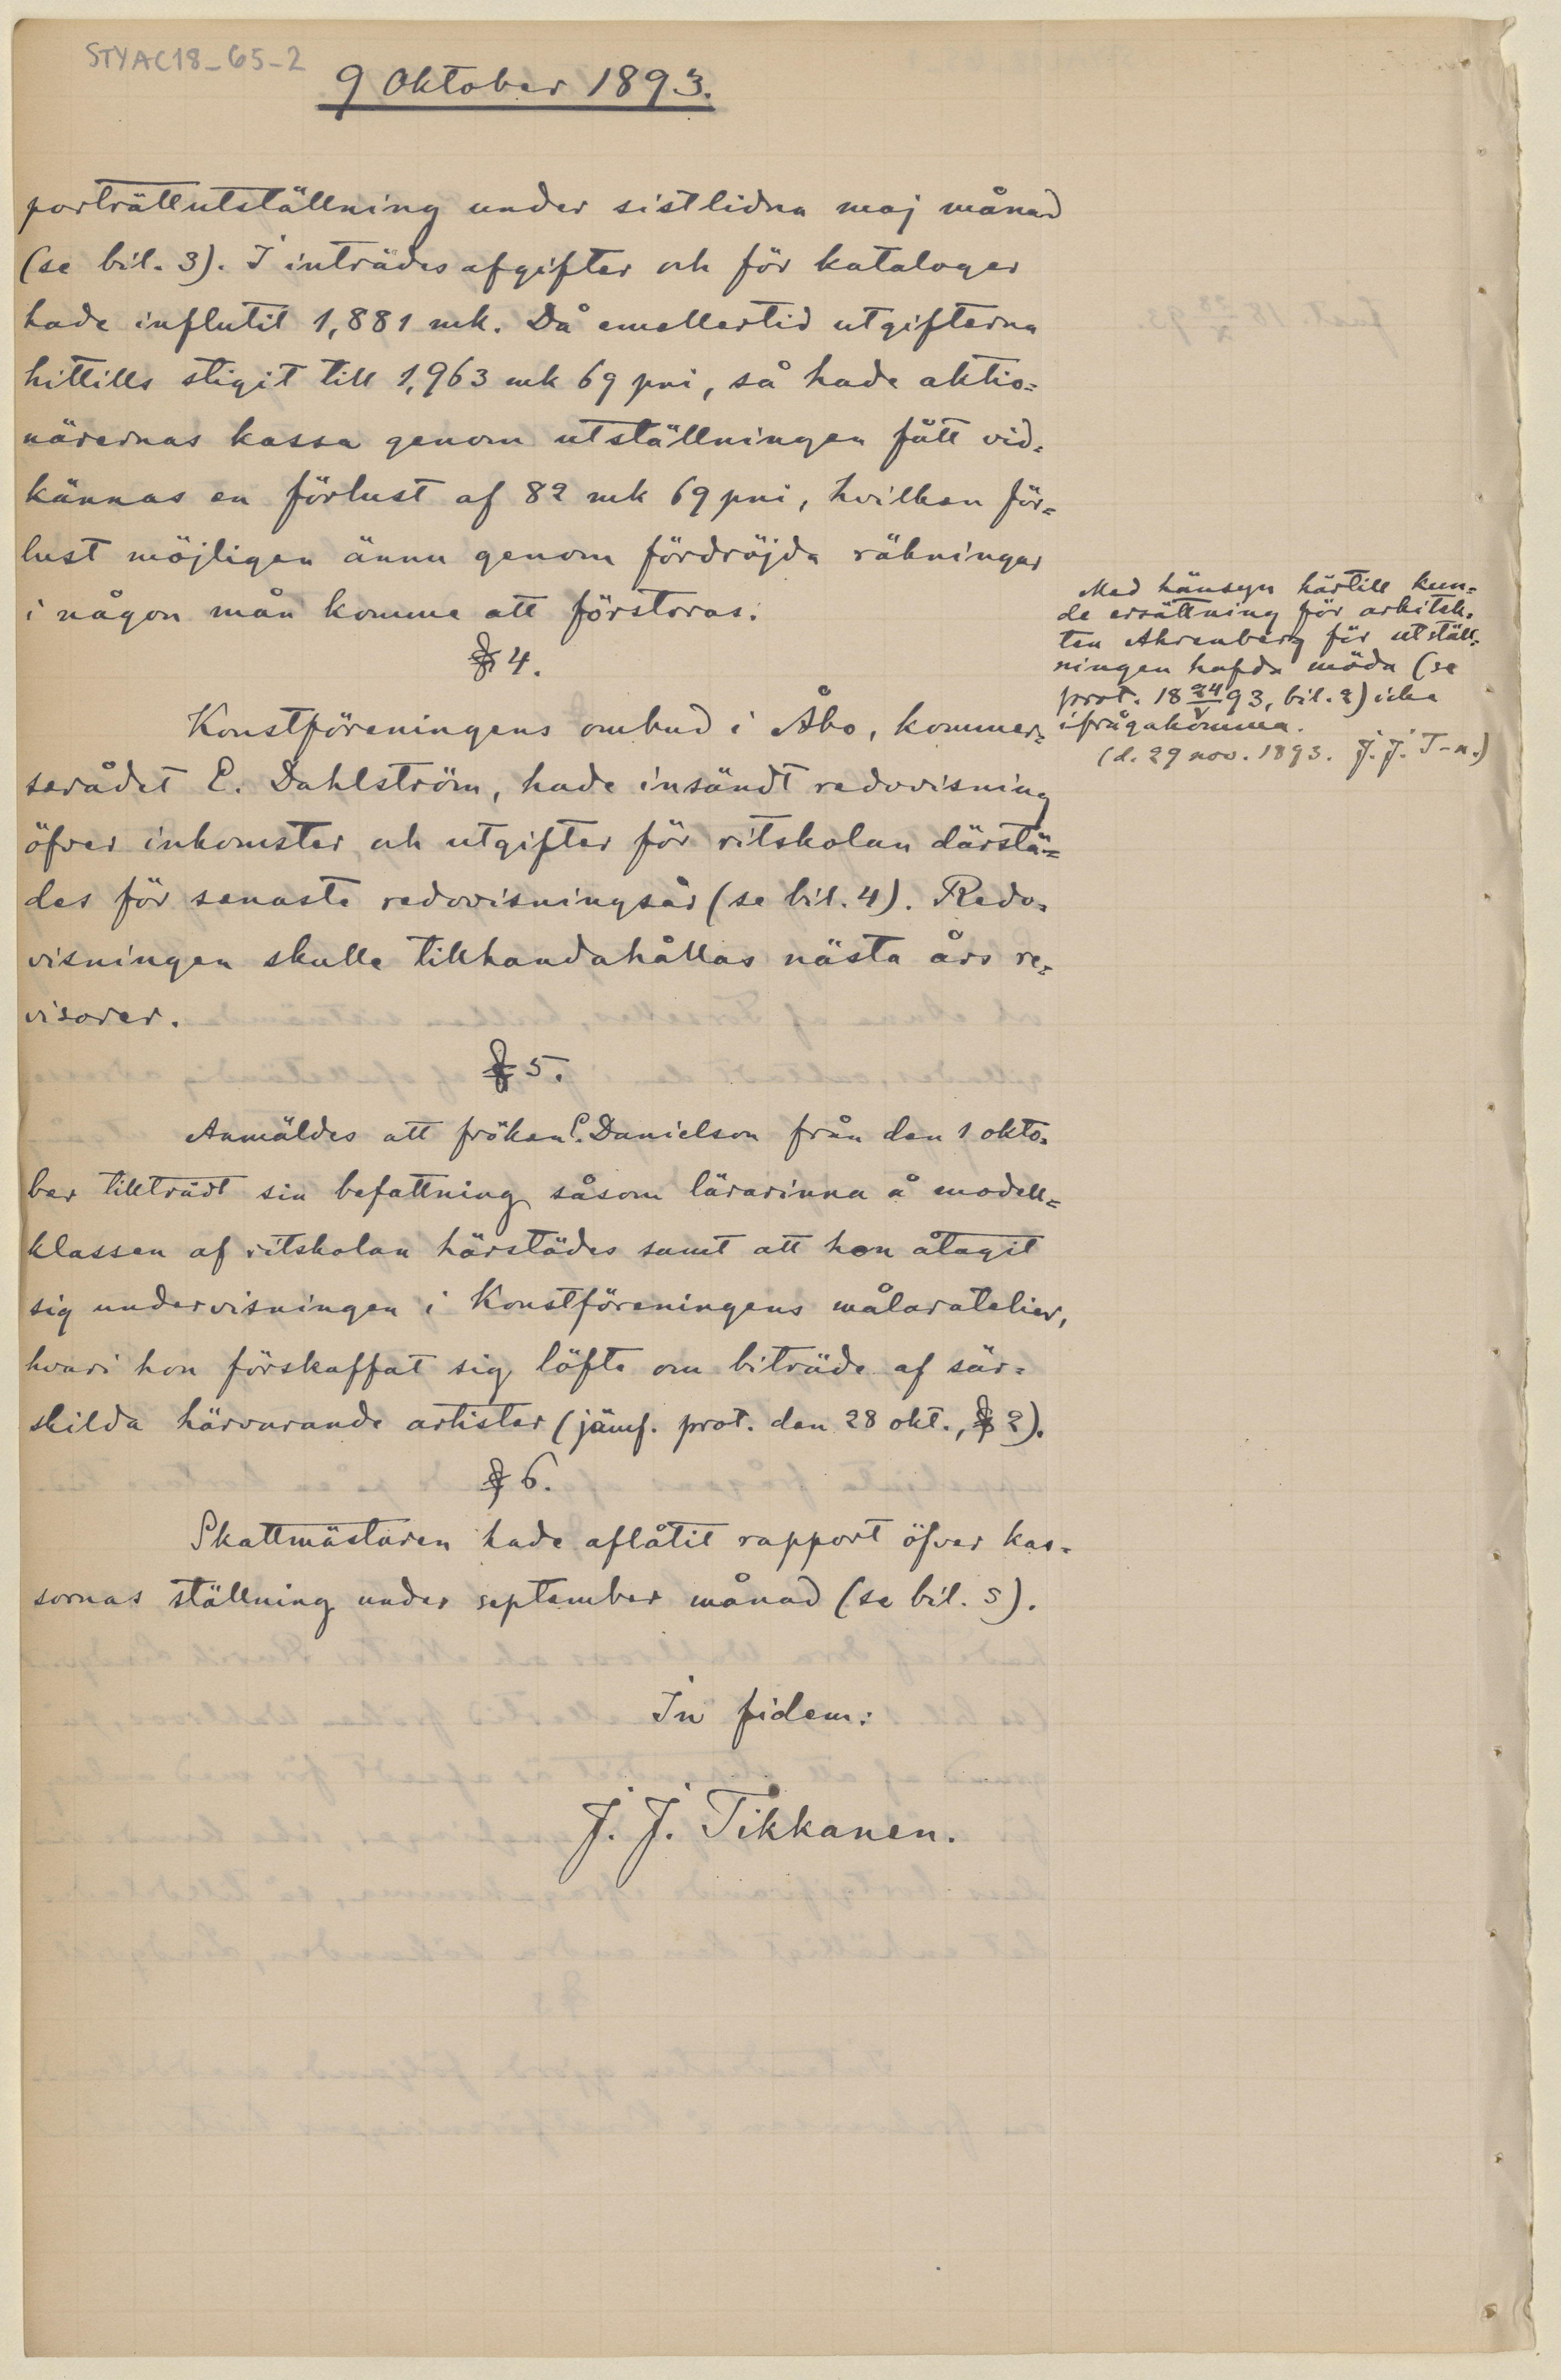 STYAC18_65-2
9 Oktober 1893.
porträttutställning under sistlidna maj månad
(se bil. 3). I inträdesafgifter och för kataloger
hade influtit 1,881 mk. Då emellertid utgifterna
hittills stigit till 1,963 mk 69 pni, så hade aktio=
närernas kassa genom utställningen fått vid=
kännas en förlust af 82 mk 69 pni, hvilken för=
lust möjligen ännu genom fördröjda räkningar
i någon mån komme att förstoras.
§ 4.
Konstföreningens ombud i Åbo, kommer=
serådet E. Dahlström, hade insändt redovisning
öfver inkomster och utgifter för ritskolan därstä=
des för senaste redovisningsår (se bil. 4). Redo=
visningen skulle tillhandahållas nästa års re=
visorer.
§ 5.
Anmäldes att fröken E. Danielson från den 1 okto=
ber tillträdt sin befattning såsom lärarinna å modell=
klassen af ritskolan härstädes samt att hon åtagit
sig undervisningen i Konstföreningens målaratelier,
hvari hon förskaffat sig löfte om biträde af sär=
skilda härvarande artister (jämf. prot. den 28 okt., § 2).
§ 6.
Skattmästaren hade aflåtit rapport öfver kas=
sornas ställning under september månad (se bil. 5).
In fidem:
J. J. Tikkanen.
Med hänsyn härtill kun=
de ersättning för arkitek=
ten Ahrenberg för utställ=
ningen hafda möda (se
prot. 18 24/V 93, bil. 2) icke
ifrågakomma.
(d. 29 nov. 1893. J. J. T-n.)